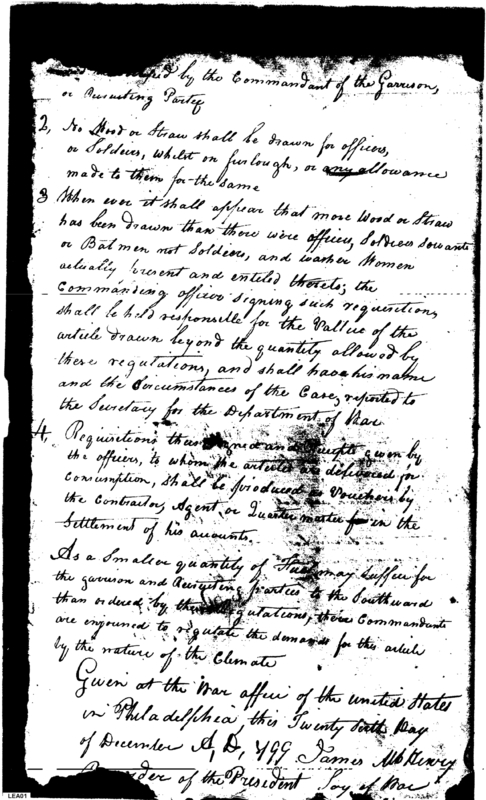 by the Commandant of the Garrison,
or Recruiting Party
2, No Wood or Straw shall be drawn for officers,
or Soldiers, whilst on furlough, or any allowance
made to them for the same
3 When ever it shall appear that more Wood or Straw
has been drawn than there were officers, Soldiers Servants
or Batmen not Soldiers, and washer Women
actually present and entitled thereto; the
Commanding officer signing such requisitions
shall be held responsible for the Vallue of the
article drawn beyond the quantity allowed by
these regulations, and shall have his name
and the Circumstances of the Case, reported to
the Secretary for the Department of War
4, Requisitions thus signed and receipts given by
the officers, to whom the articles are delivered for
Consumption, shall be produced as Vouchers by
the Contractor, Agent, or Quarter master in the
Settlement of his accounts.
As a Smaller quantity of Fuel may suffice for
the garrison and Recruiting parties to the Southward
than ordered by these regulations, their Commandants
are enjouned to regulate the demands for this article
by the nature of the Climate
Given at the War office of the united States
in Philadelphia, this Twenty Day
of December A, D, 1799 James McHenry
By order of the President Scy of War
LEA01